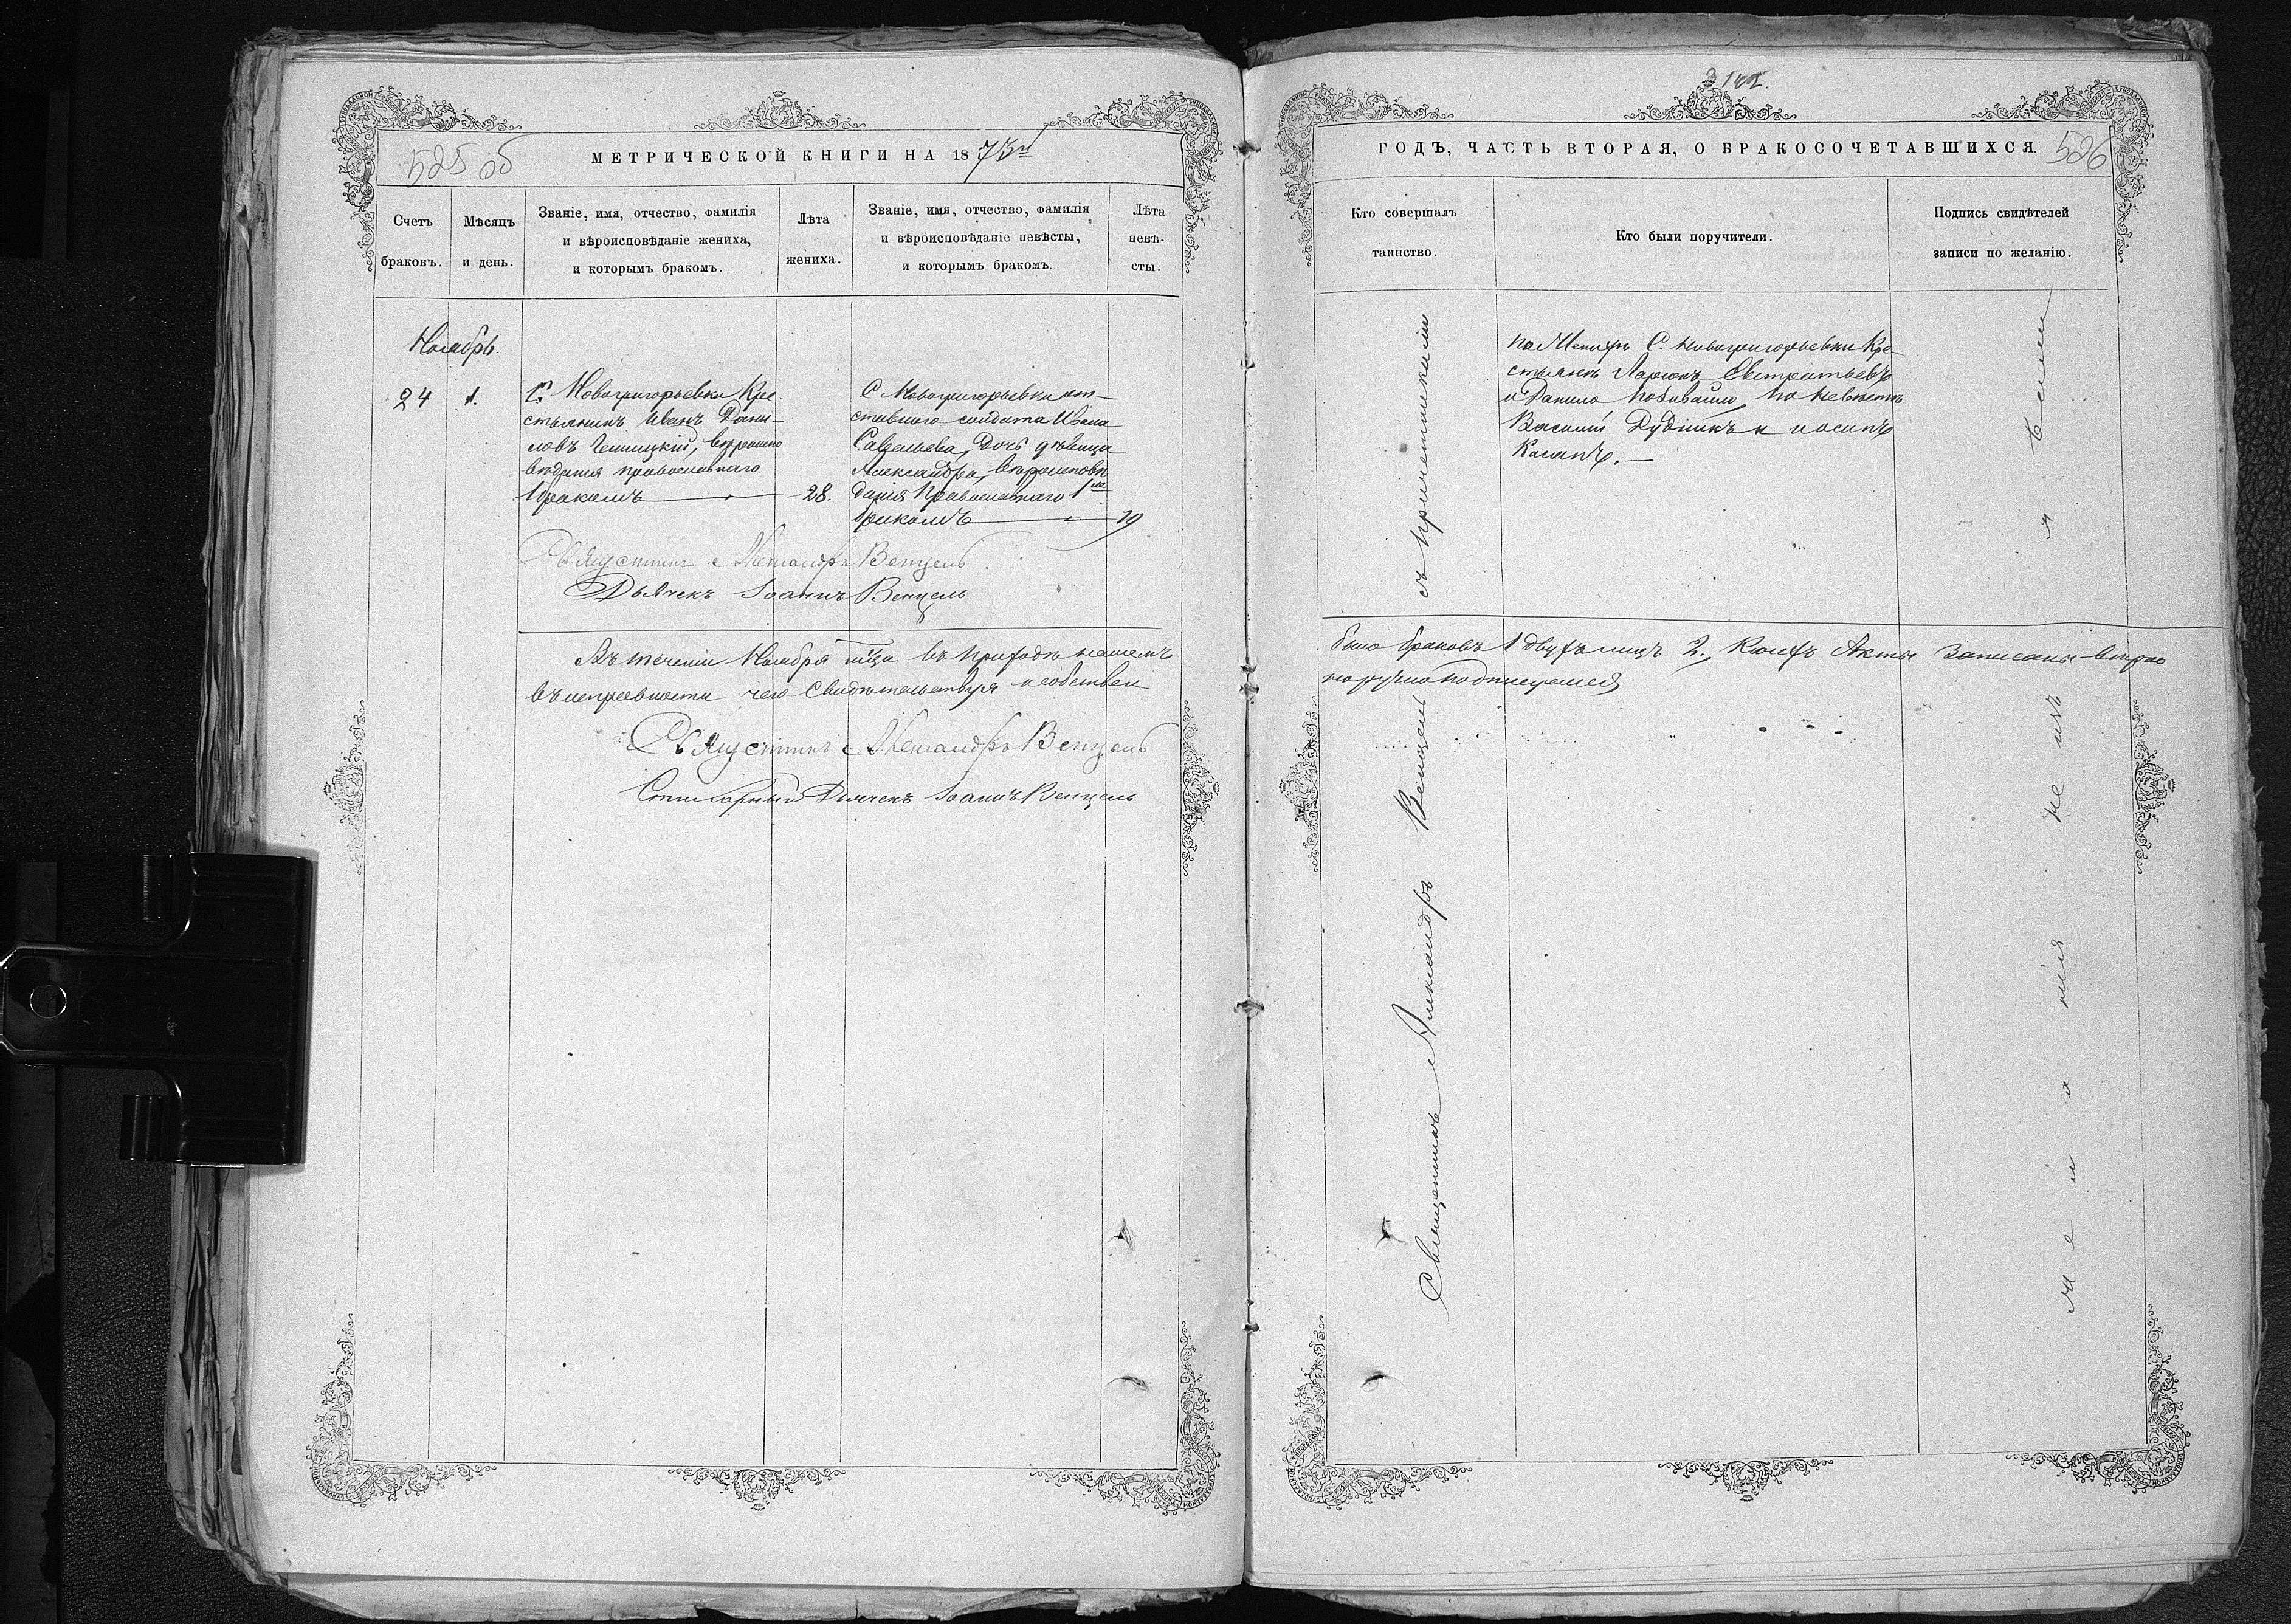 525 об
МЕТРИЧЕСКОЙ КНИГИ НА 1873й
Счетъ браковъ.
Мѣсяцъ и день.
Званіе, имя, отчество, фамилія
и вѣроисповѣданіе жениха,
и которымъ бракомъ.
Лѣта жениха.
Званіе, имя, отчество, фамилія
и вѣроисповѣданіе невѣсты,
и которымъ бракомъ.
Лѣта невѣ-
сты.
Ноябрь.
24
1.
С. Новогригорьевки Кре
стьянинъ Иванъ Дани-
ловъ вѣроиспо
вѣданія православнаго
1 бракомъ
28.
С. Новогригорьевки от-
ставнаго солдата Ивана
Савельева, Дочь дѣвица
Александра, вѣроисповѣ
данія Православнаго 1мъ
бракомъ
19
Священникъ Александръ Венцель.
Дьячекъ Іоаннъ Венцель
Въ теченіи Ноября м-ца въ приходѣ нашемъ
въ чего свидѣтельствуя собствен
Священникъ Александръ Венцель
Стихарный Дьячекъ Іоаннъ Венцель
314
ГОДЪ, ЧАСТЬ ВТОРАЯ, О БРАКОСОЧЕТАВШИХСЯ.
526
Кто совершалъ
таинство.
Кто были поручители.
Подпись свидѣтелей
записи по желанію.
Священникъ Александръ Венцель съ причетниками
по Женихѣ С. Новогригорьевки Кре-
стьянъ Ларіонъ Евстратьевъ
и Данило по невѣстѣ
Василій Дудникъ и Іосипъ
было браковъ 1 двухъ лицъ 2., коихъ Акты записаны вѣрно
норучно подписуемся